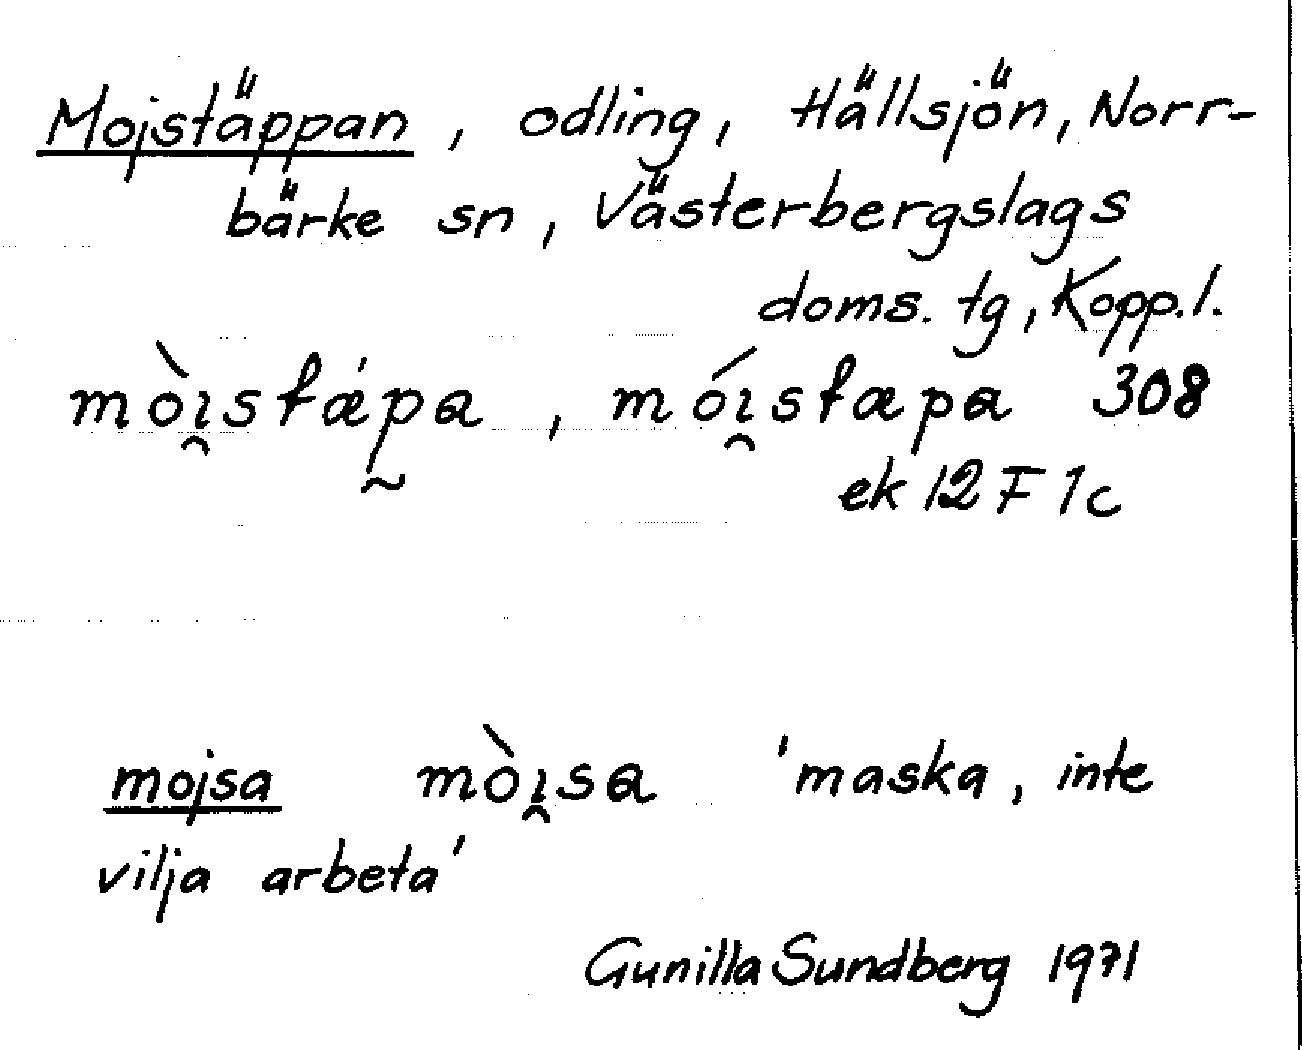 Mojstäppan, odling, Hällsjön, Norr-
bärke sn, Västerbergslags
doms. tg, Kopp.l.
mòı̯stǽp̰a, móı̯stæpa 308
ek 12 F 1c
mojsa mòı̯sa 'maska, inte
vilja arbeta'
Gunilla Sundberg 1971